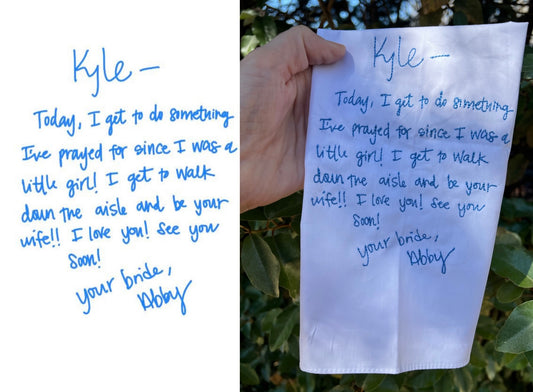 Kyle –
Today, I get to do something
I've prayed for since I was a
little girl! I get to walk
down the aisle and be your
wife!! I love you! See you
soon!
your bride,
Abby
Kyle –
Today, I get to do something
I've prayed for since I was a
little girl! I get to walk
down the aisle and be your
wife!! I love you! See you
soon!
your bride,
Abby